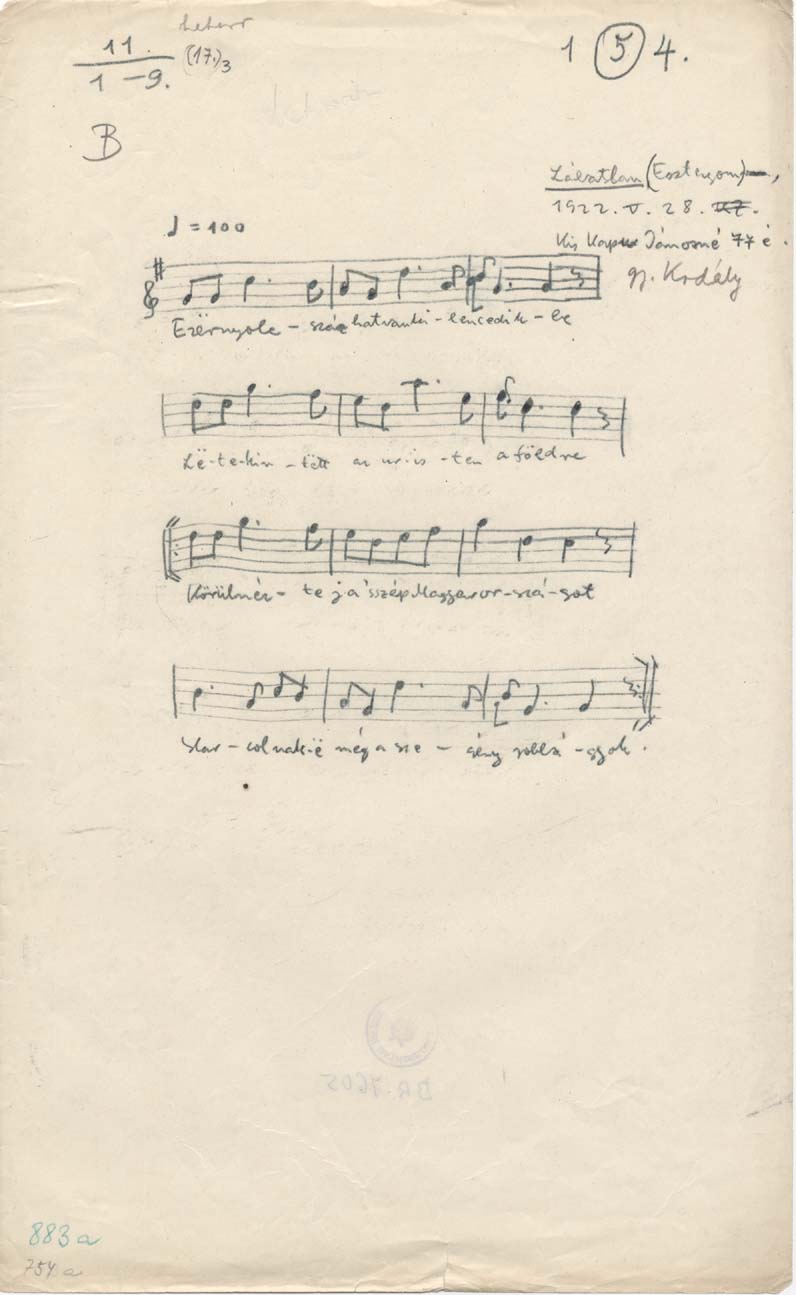 11.
1 – 9.
(17.)3
1 (5) 4.
B
Lábatlan (Esztergom),
1922. V. 28.
Kis Kapus Jánosné 77 é.
gy. Kodály
♩ = 100
Ezërnyolc – száz hatvanki – lencedik – be
Lë-te-kin – tëtt az ur-is – ten a földre
Körülnéz – te j a' sszép Magyaror-szá-got
szegény
883 a
754 a
DR. 7605